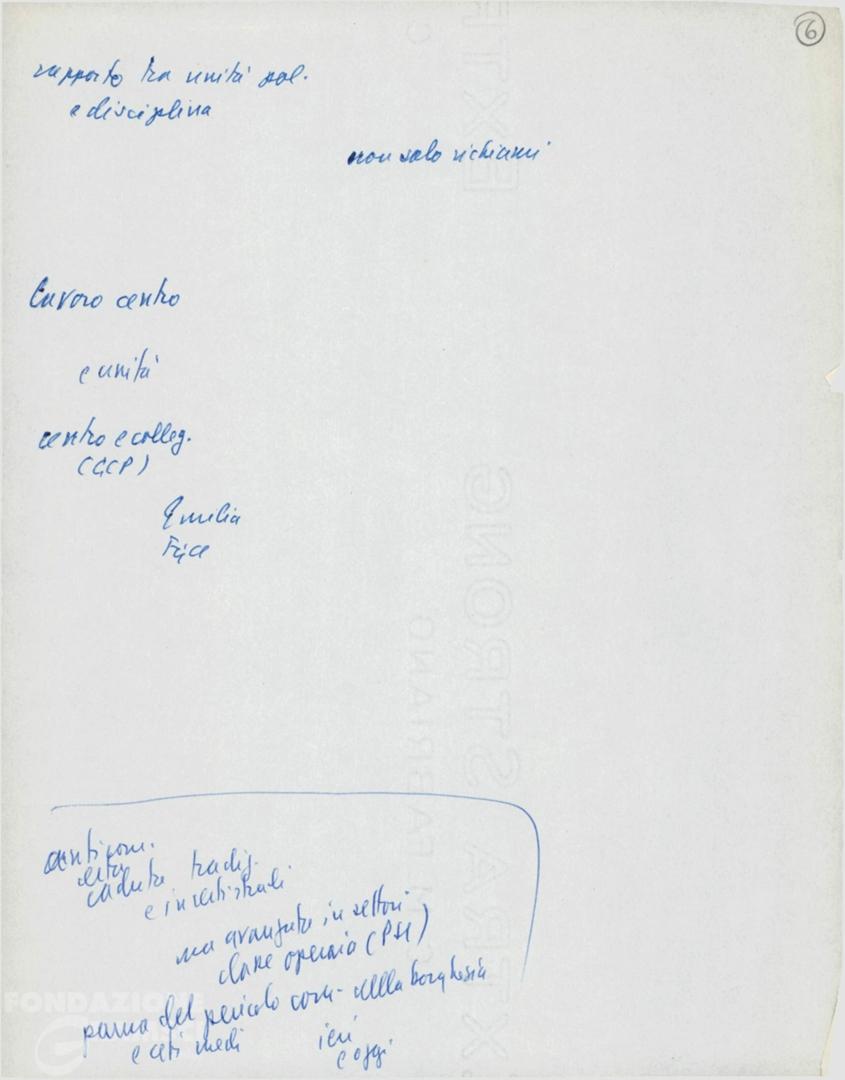 6
rapporto tra unità pol.
e disciplina
non solo richiami
lavoro centro
e unità
centro e colleg.
(GCP)
Emilia
anticom.
caduta tradiz.
e in ceti
ma avanzata in settori
classe operaia (PSI)
paura del pericolo com. della borghesia
e ceti medi
ieri
e oggi
FONDAZIONE
EXTRA STRONG
FABRIANO